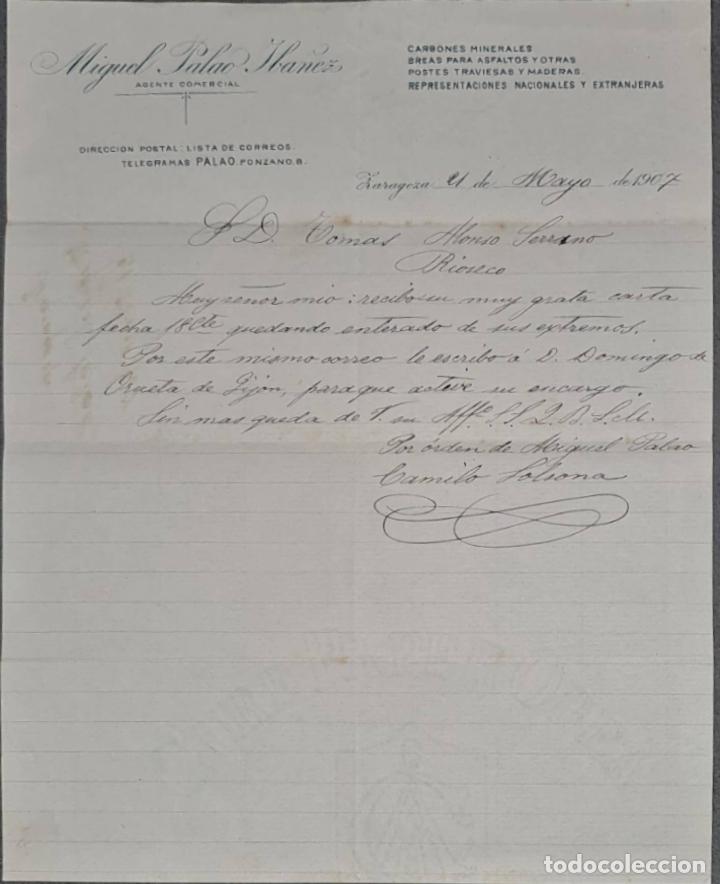 Miguel Palao Ibañez
AGENTE COMERCIAL
CARBONES MINERALES
BREAS PARA ASFALTOS Y OTRAS
POSTES TRAVIESAS Y MADERAS.
REPRESENTACIONES NACIONALES Y EXTRANJERAS
DIRECCION POSTAL: LISTA DE CORREOS.
TELEGRAMAS PALAO. PONZANO, 8.
Zaragoza 21 de Mayo de 1907
S. D. Tomas Alonso Serrano
Rioseco
Muy señor mio: recibo su muy grata carta
fecha 18 cte quedando enterado de sus extremos.
Por este mismo correo le escribo á D. Domingo de
Orueta de Gijón, para que active su encargo.
Sin mas queda de V. su Affº. S. S. Q. B. S. M.
Por órden de Miguel Palao
Camilo Solsona
todocoleccion